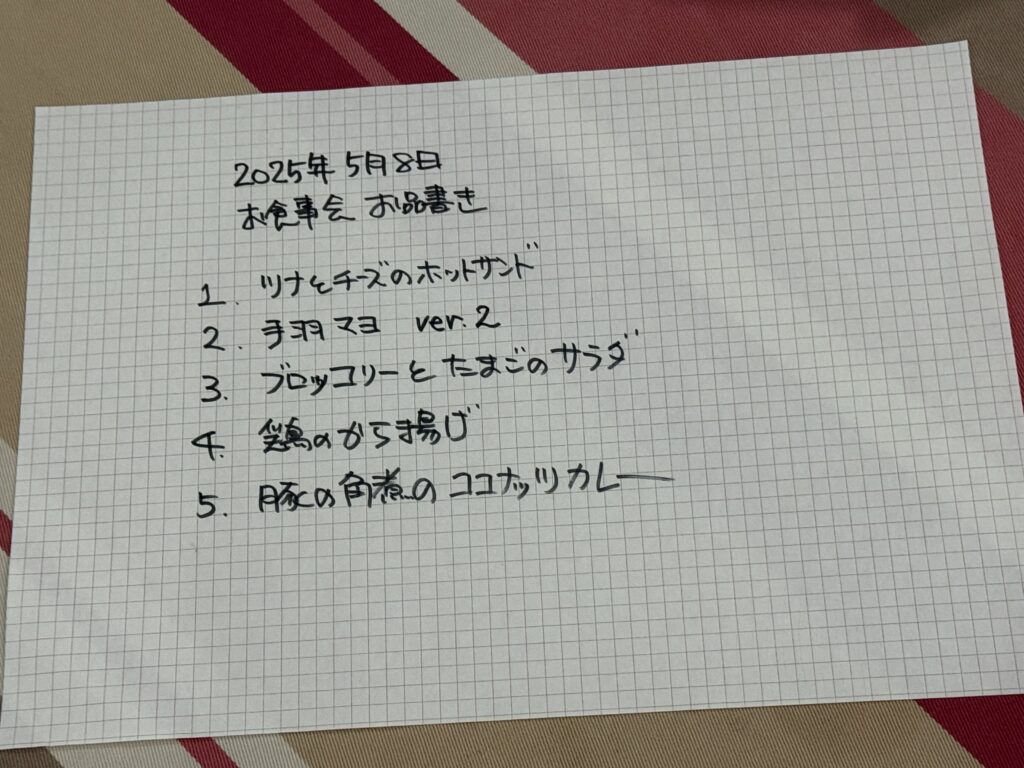 2025年5月8日
お食事会 お品書き
1. ツナとチーズのホットサンド
2. 手羽マヨ ver.2
3. ブロッコリーとたまごのサラダ
4. 鶏のから揚げ
5. 豚の角煮のココナッツカレー